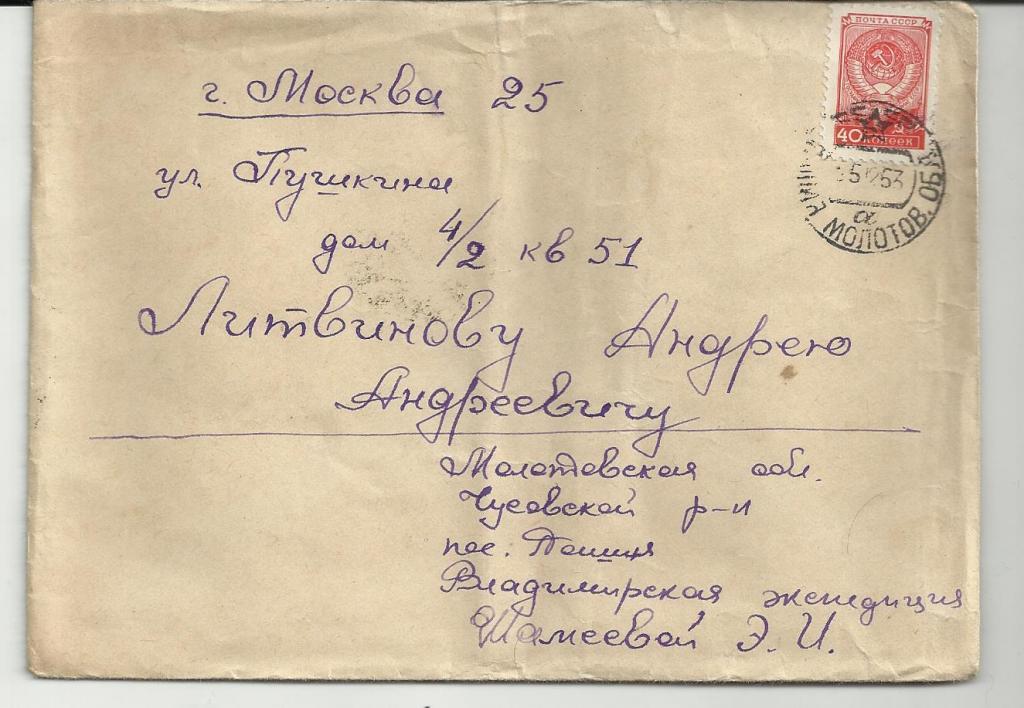 ПОЧТА СССР
40 КОПЕЕК
5 12 53
а
МОЛОТОВ. ОБЛ
г. Москва 25
ул. Пушкина
дом 4/2 кв 51
Литвинову Андрею
Андреевичу
Молотовская обл.
Чусовской р-н
пос.
Владимирская экспедиция
Э. И.